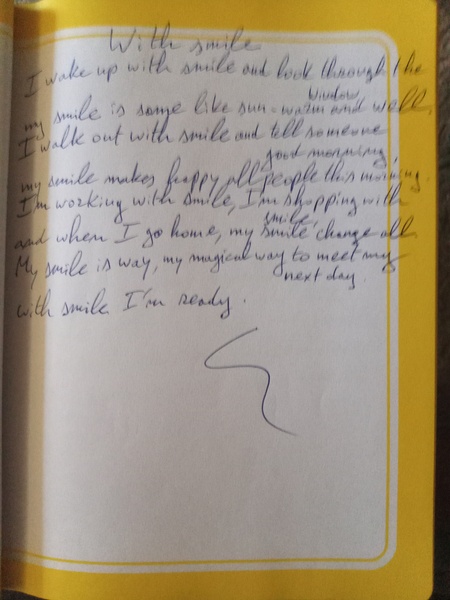 With smile
I wake up with smile and look through the
window,
my smile is some like sun - warm and well,
I walk out with smile and tell someone
good morning,
my smile makes happy all people this morning.
I'm working with smile, I'm shopping with
smile,
and when I go home, my smile change all.
My smile is way, my magical way to meet my
next day.
with smile I'm ready.